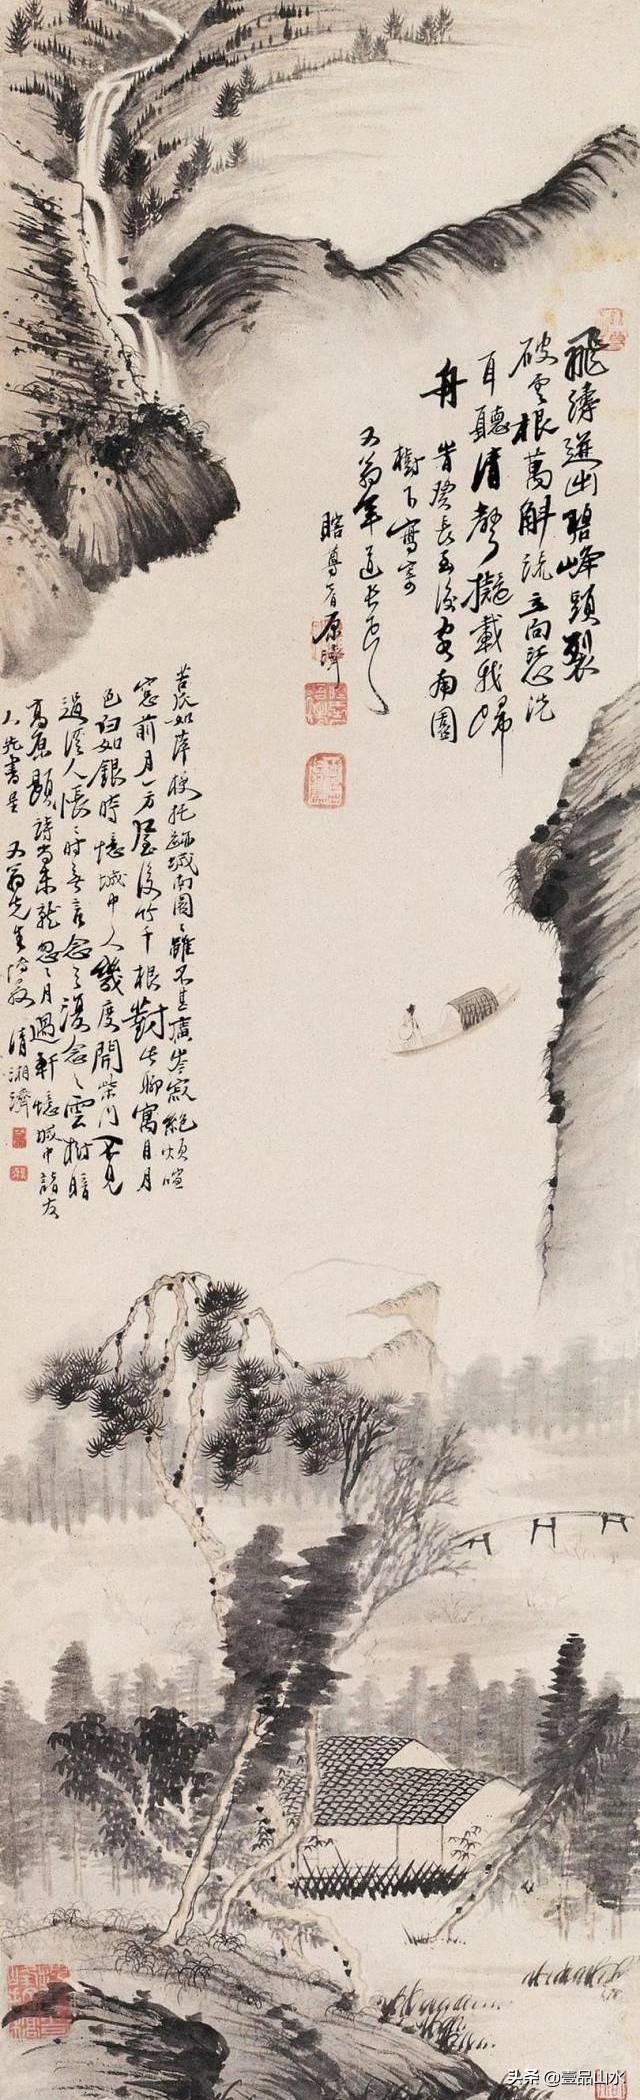 飛濤迸出碧峰頭裂
破雲根萬斛流立向懸崖洗
耳聽清聲擬載我歸
舟 昔癸長至後客南園
樹下寫寄
又翁年道長兄
瞎尊者原濟
苦依如萍梗托跡城南園園雖不甚廣岑寂絕煩喧
窓前月一方屋後竹千根對此聊寓目月
色白如銀時憶城中人幾度開柴門不見
過溪人悵悵時無言念之復念之雲樹暗
高原 題詩尚未就忽忽月過軒憶城中諸友
人先書呈 又翁先生 清湘濟
头条 @壹品山水